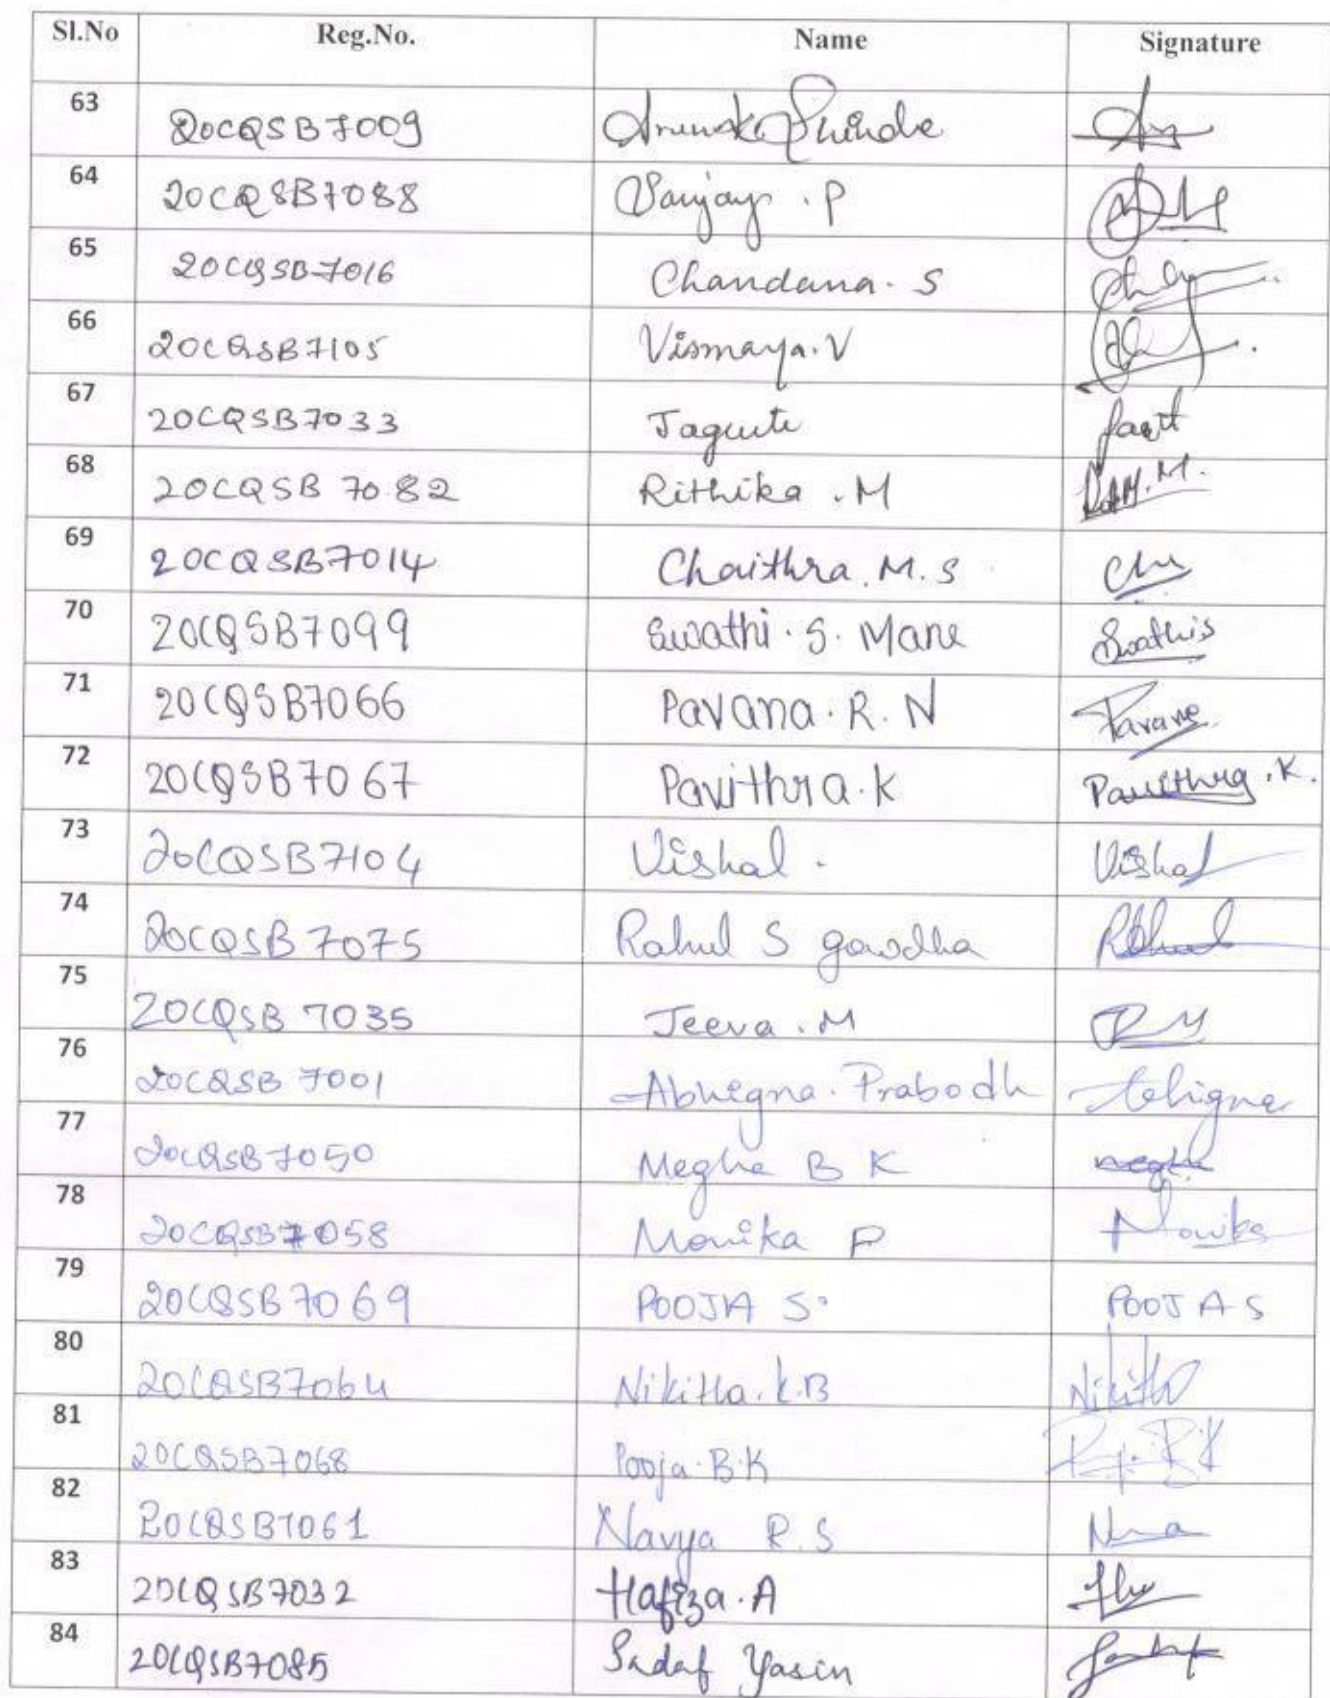 Sl.No Reg.No. Name Signature
63 20CQSB7009 Anuska Shinde
64 20CQSB7088 Sanjay .P
65 20CQSB7016 Chandana. S
66 20CQSB7105 Vismaya.V
67 20CQSB7033 Jaguti
68 20CQSB 7082 Rithika .M
69 20CQSB7014 Chaithra.M.S
70 20CQSB7099 Swathi.S. Mane Swathis
71 20CQSB7066 Pavana.R.N Pavana
72 20CQSB7067 Pavithra.K Pavithra.K.
73 20CQSB7104 Vishal. Vishal
74 20CQSB7075 Rahul S gowdha Rahul
75 20CQSB 7035 Jeeva.M
76 20CQSB 7001 Abhigna.Prabodh Abhigna
77 20CQSB7050 Megha B K megha
78 20CQSB7058 Monika P Monika
79 20CQSB7069 POOJA S. POOJA S
80 20CQSB7064 Nikitha.k.B Nikitha
81 20CQSB7068 Pooja.B.K
82 20CQSB7061 Navya R.S
83 20CQSB7032 Hafiza.A
84 20CQSB7085 Sadaf Yasin